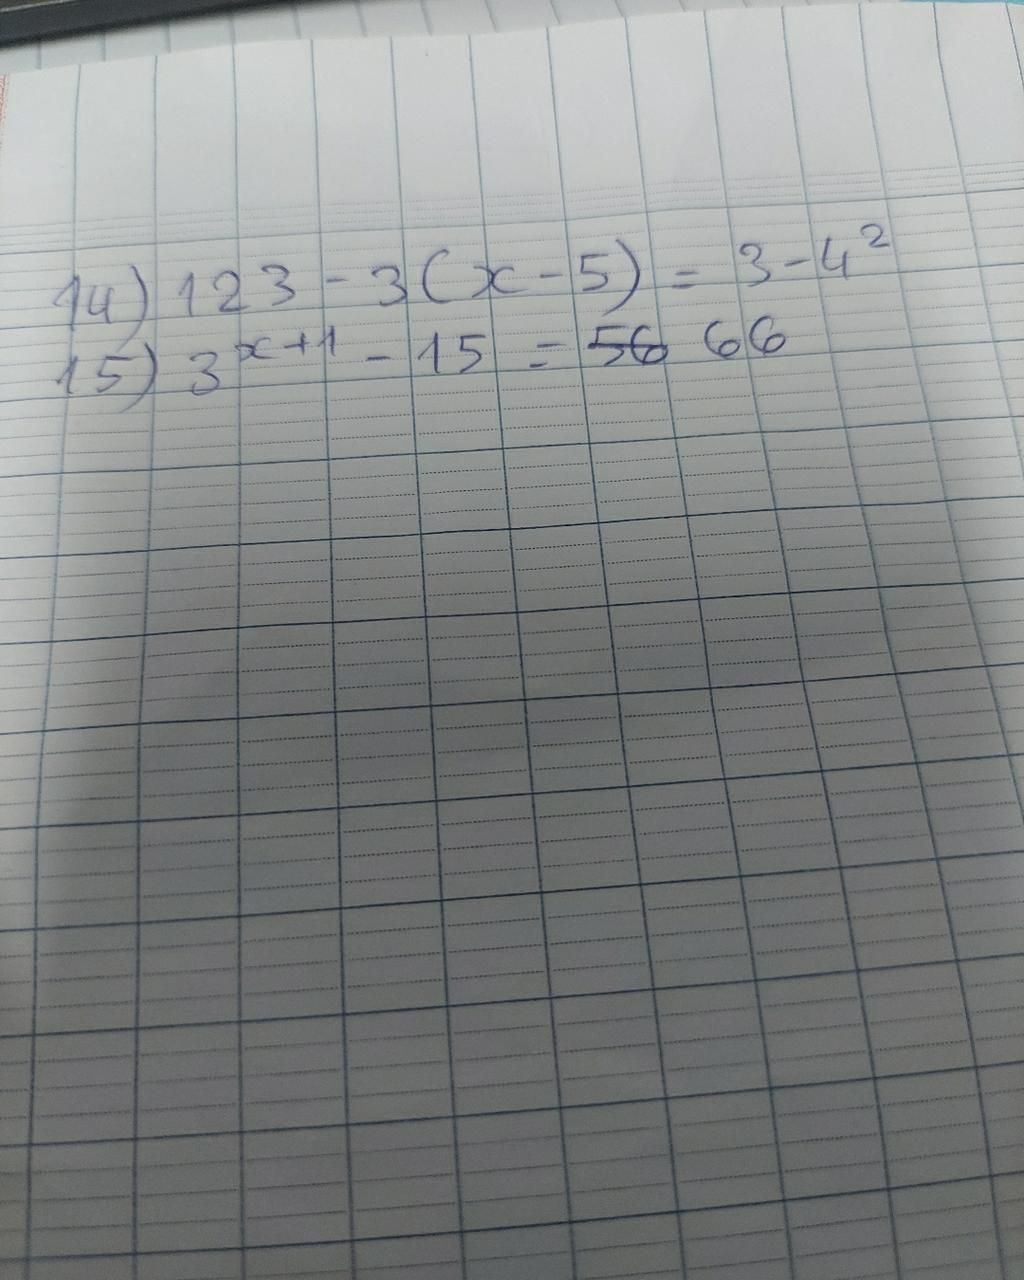 14) 123 - 3(x - 5) = 3 - 4²
15) 3^{x+1} - 15 = 56 66